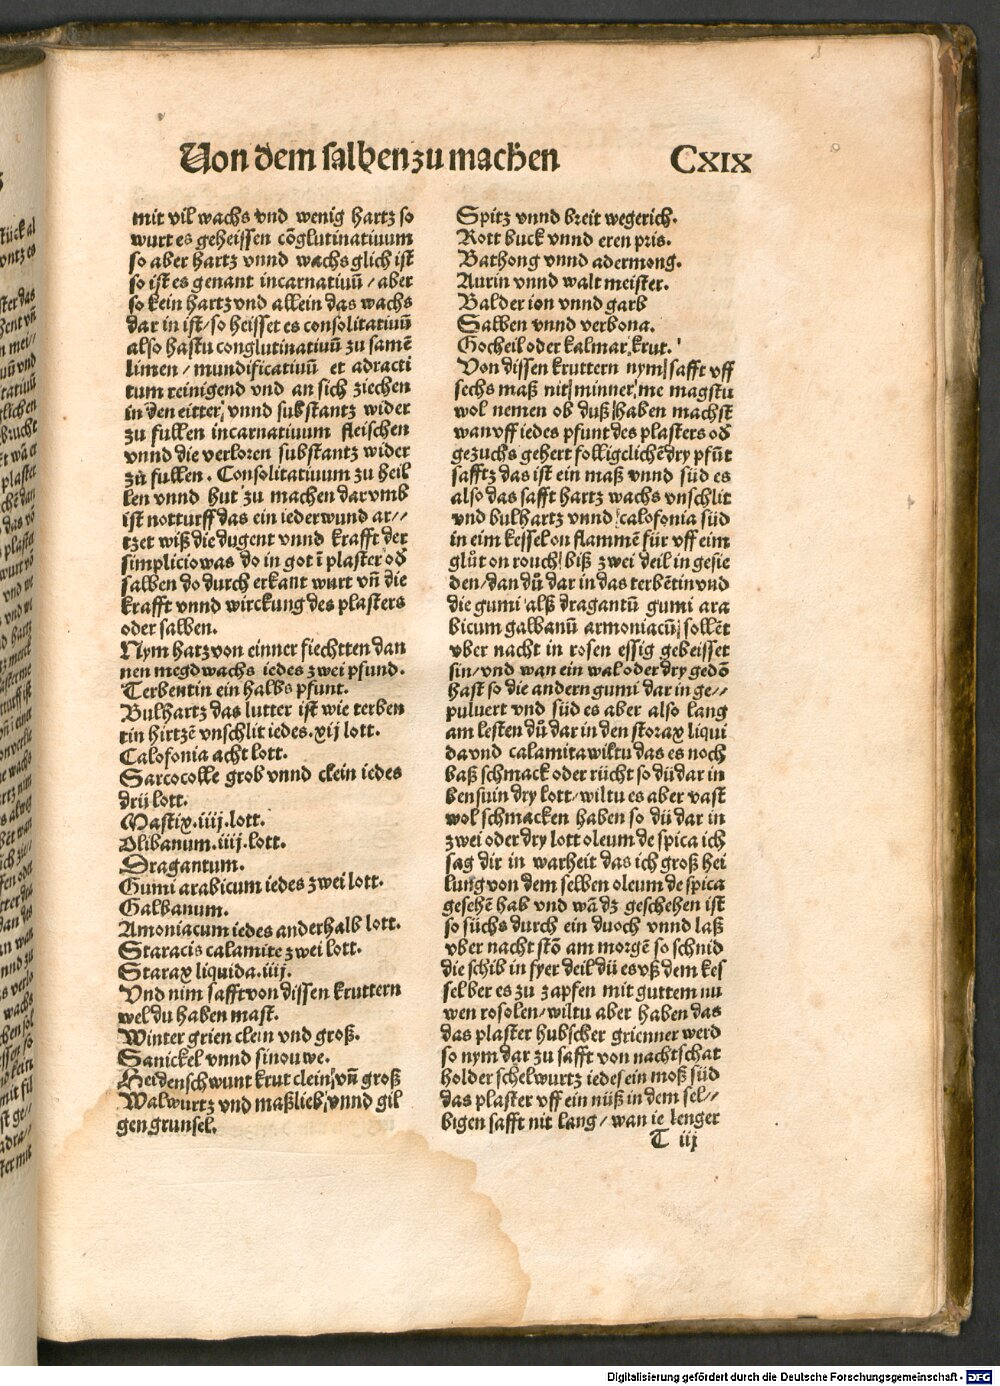 Von dem salben zu machen CXIX
mit vil wachs vnd wenig hartz so
wurt es geheissen cõglutinatiuum
so aber hartz vnnd wachs glich ist
so ist es genant incarnatiuũ / aber
so kein hartz vnd allein das wachs
dar in ist / so heisset es consolitatiuũ
also hastu conglutinatiuũ zu samẽ
limen / mundificatiuũ et adracti
tum reinigend vnd an sich ziechen
in den eitter / vnnd substantz wider
zu fullen incarnatiuum fleischen
vnnd die verloren substantz wider
zů fullen. Consolitatiuum zu heil
len vnnd hut zu machen darvmb
ist notturff das ein ieder wund ar//
tzet wiß die dugent vnnd krafft der
simplicio was do in got ĩ plaster od̃
salben do durch erkant wurt vñ die
krafft vnnd wirckung des plasters
oder salben.
Nym hartz von einner fiechtten dan
nen megdwachs iedes zwei pfund.
Terbentin ein halbs pfunt.
Bulhartz das lutter ist wie terben
tin hirtzẽ vnschlit iedes. xij lott.
Calofonia acht lott.
Sarcocolle grob vnnd clein iedes
drü lott.
Mastix. iiij. lott.
Olibanum. iiij. lott.
Dragantum.
Gumi arabicum iedes zwei lott.
Galbanum.
Amoniacum iedes anderhalb lott.
Staracis calamite zwei lott.
Starax liquida. iij.
Vnd nim safft von dissen kruttern
wel du haben mast.
Winter grien clein vnd groß.
Sanickel vnnd sinouwe.
Heidenschwunt krut clein vñ groß
Walwurtz vnd maßlieb vnnd gil
gen grunsel.
Spitz vnnd breit wegerich.
Rott buck vnnd eren pris.
Bathong vnnd adermong.
Aurin vnnd walt meister.
Balder ion vnnd garb
Salben vnnd verbona.
Gocheil oder kalmar krut.
Von dissen kruttern nym safft vff
sechs maß nit minner me magstu
wol nemen ob duß haben machst
wan vff iedes pfunt des plasters od̃
gezuchs gehert folligclichẽ dry pfũt
safftz das ist ein maß vnnd süd es
also das safft hartz wachs vnschlit
vnd bulhartz vnnd calofonia süd
in eim kessel on flammẽ für vff eim
glůt on rouch biß zwei deil in gesie
den / dan dů dar in das terbẽtin vnd
die gumi alß dragantũ gumi ara
bicum galbanũ armoniacũ sollẽt
vber nacht in rosen essig gebeisset
sin / vnd wan ein wal oder dry gedõ
hast so die andern gumi dar in ge//
puluert vnd süd es aber also lang
am lesten dů dar in den storax liqui
da vnd calamita wiltu das es noch
baß schmack oder rücht so dü dar in
bensuin dry lott / wiltu es aber vast
wol schmacken haben so dü dar in
zwei oder dry lott oleum de spica ich
sag dir in warheit das ich groß hei
lung von dem selben oleum de spica
gesehẽ hab vnd wã dz geschehen ist
so süchs durch ein duoch vnnd laß
vber nacht stõ am morgẽ so schnid
die schib in fyer deil dü es vß dem kes
sel ber es zu zapfen mit guttem nu
wen rosolen / wiltu aber haben das
das plaster hubscher grienner werd
so nym dar zu safft von nachtschat
holder schelwurtz iedes ein moß süd
das plaster vff ein nüß in dem sel//
bigen safft nit lang / wan ie lenger
T iij
Digitalisierung gefördert durch die Deutsche Forschungsgemeinschaft - DFG